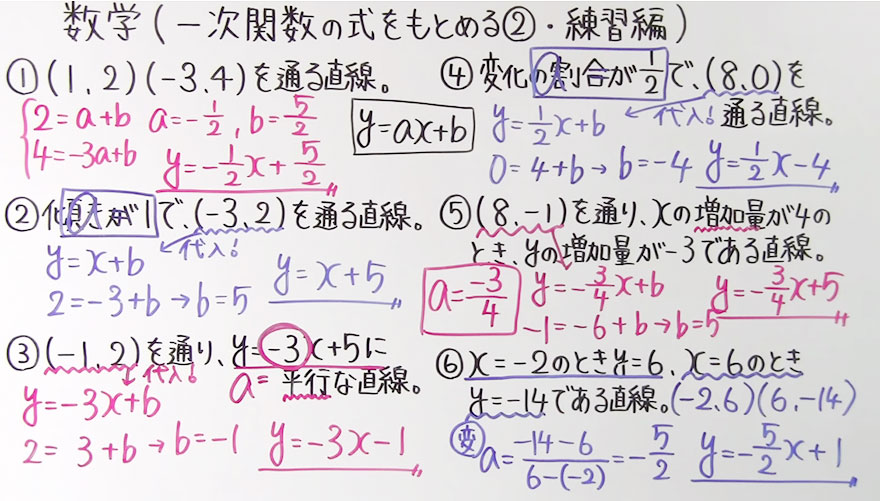 数学(一次関数の式をもとめる②・練習編)
①(1,2)(-3,4)を通る直線。
2=a+b a=-1/2, b=5/2
4=-3a+b y=-1/2x+5/2
y=ax+b
②傾きが1で、(-3,2)を通る直線。
代入!
y=x+b
2=-3+b→b=5 y=x+5
③(-1,2)を通り、y=-3x+5に
平行な直線。
代入! a=
y=-3x+b
2=3+b→b=-1 y=-3x-1
④変化の割合が1/2で、(8,0)を
通る直線。
代入!
y=1/2x+b
0=4+b→b=-4 y=1/2x-4
⑤(8,-1)を通り、xの増加量が4の
とき、yの増加量が-3である直線。
a=-3/4 y=-3/4x+b y=-3/4x+5
-1=-6+b→b=5
⑥x=-2のときy=6、x=6のとき
y=-14である直線。(-2,6)(6,-14)
変 a=-14-6/6-(-2)=-5/2 y=-5/2x+1